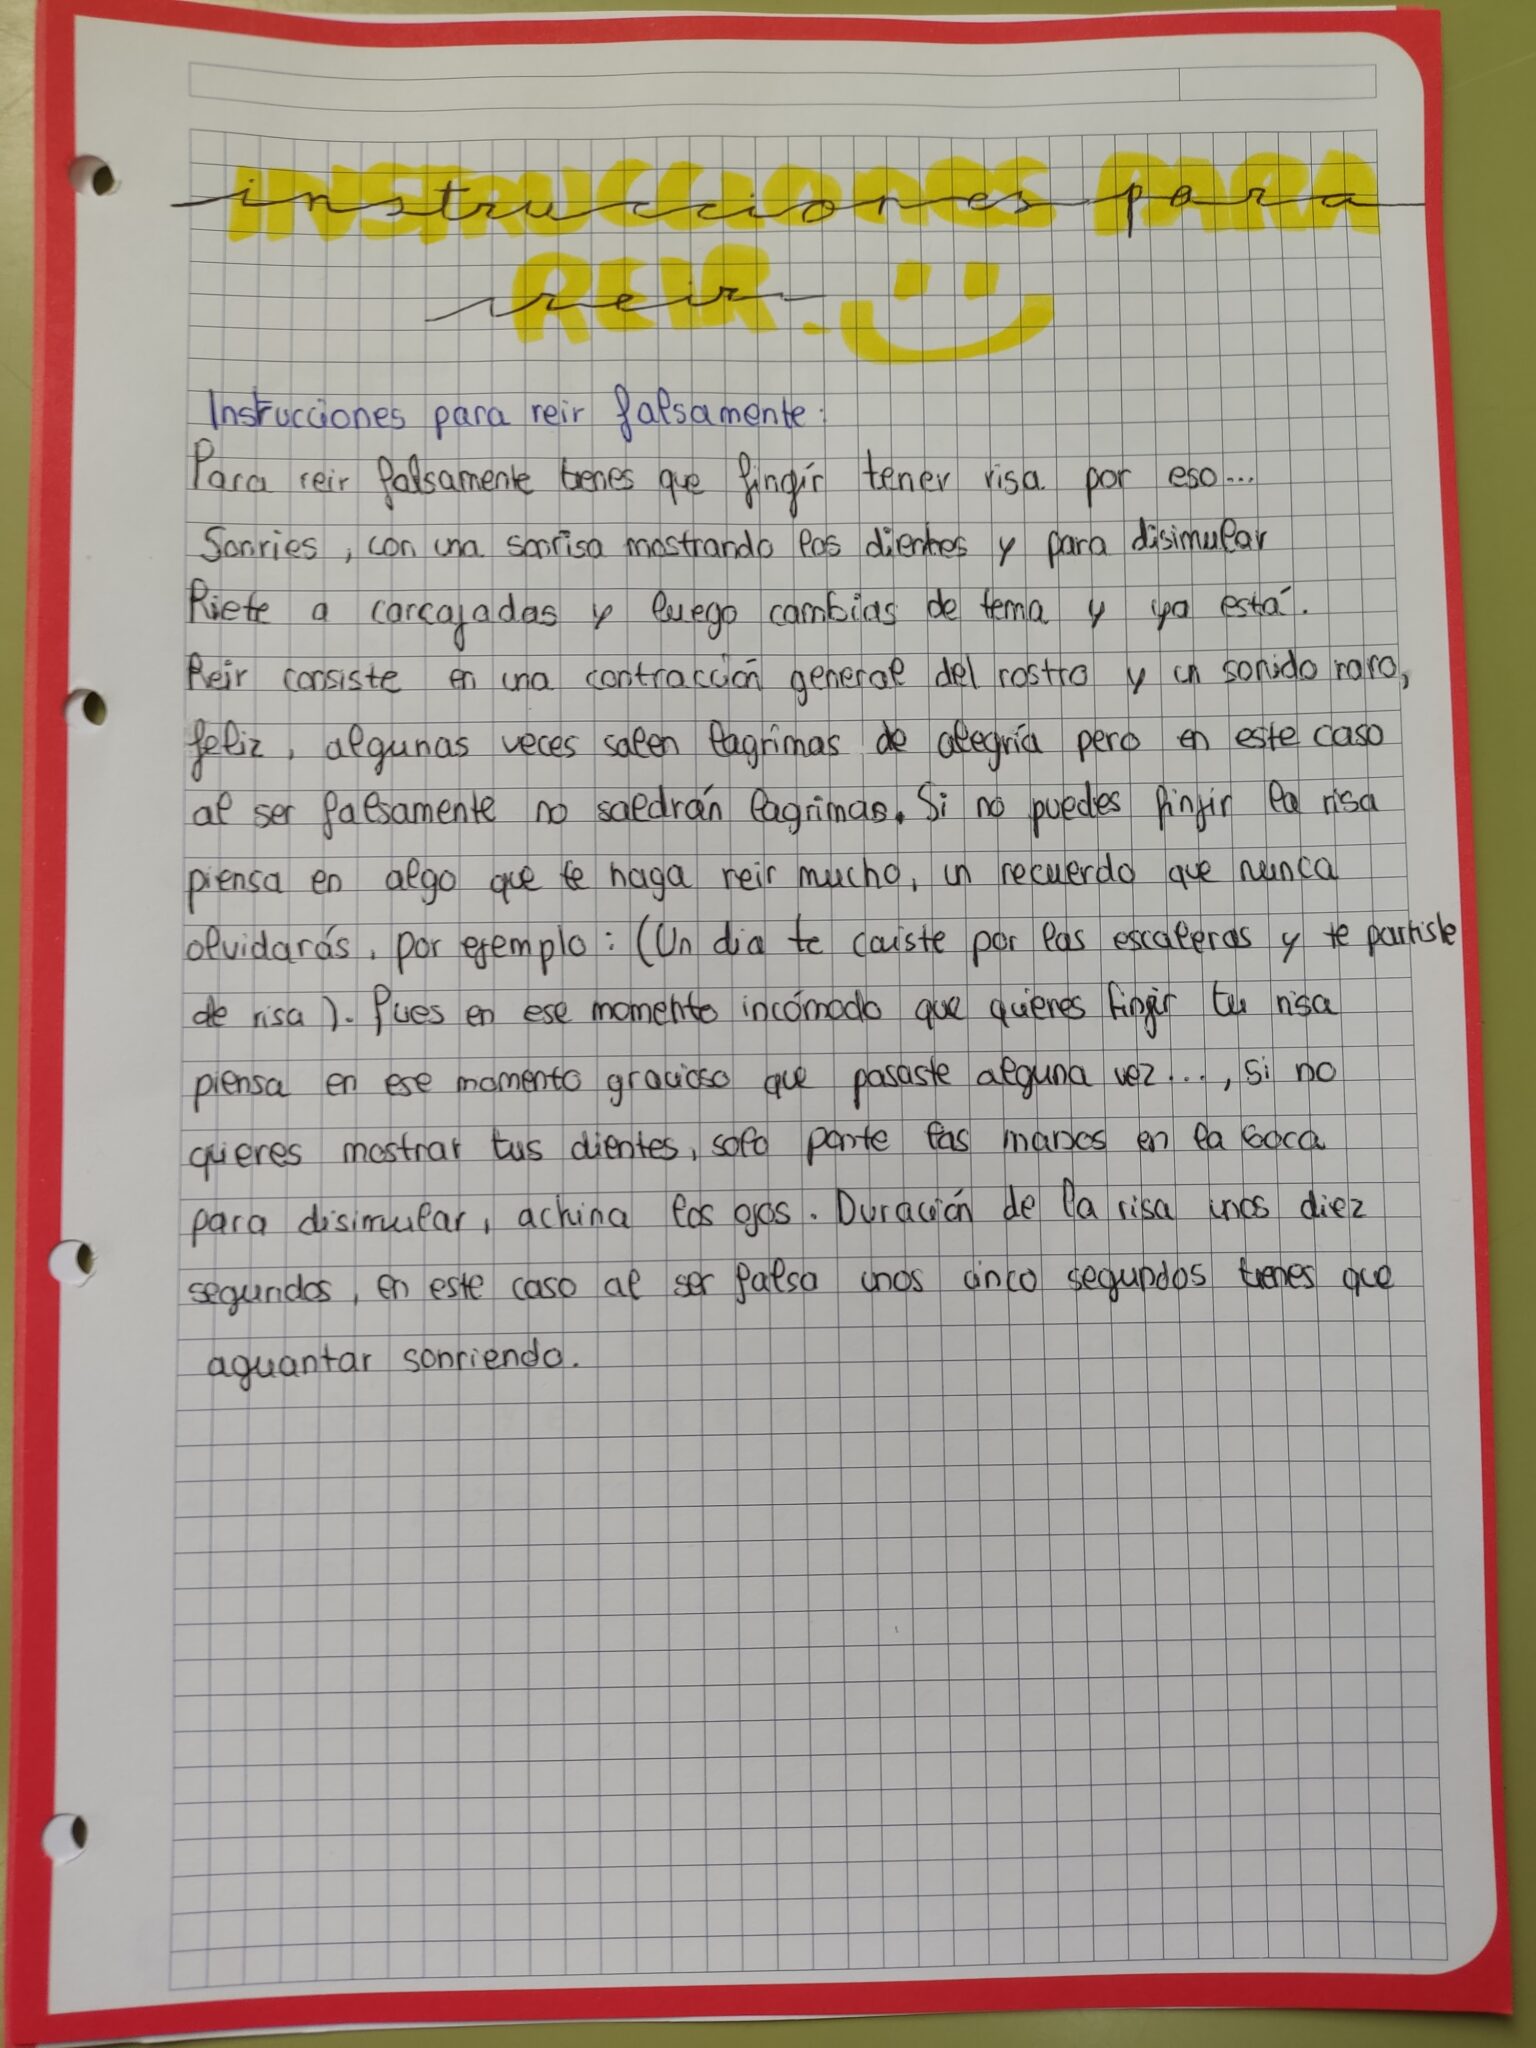 INSTRUCCIONES PARA
instrucciones para
REIR.
reir
Instrucciones para reir falsamente:
Para reir falsamente tienes que fingir tener risa por eso...
Sonries, con una sonrisa mostrando los dientes y para disimular
Riete a carcajadas y luego cambias de tema y ya está.
Reir consiste en una contracción general del rostro y un sonido raro,
feliz, algunas veces salen lagrimas de alegría pero en este caso
al ser falsamente no saldrán lagrimas. Si no puedes finjir la risa
piensa en algo que te haga reir mucho, un recuerdo que nunca
olvidarás, por ejemplo: (Un dia te caiste por las escaleras y te partiste
de risa). Pues en ese momento incómodo que quieres finjir tu risa
piensa en ese momento gracioso que pasaste alguna vez..., si no
quieres mostrar tus dientes, solo ponte las manos en la boca
para disimular, achina los ojos. Duración de la risa unos diez
segundos, en este caso al ser falsa unos cinco segundos tienes que
aguantar sonriendo.